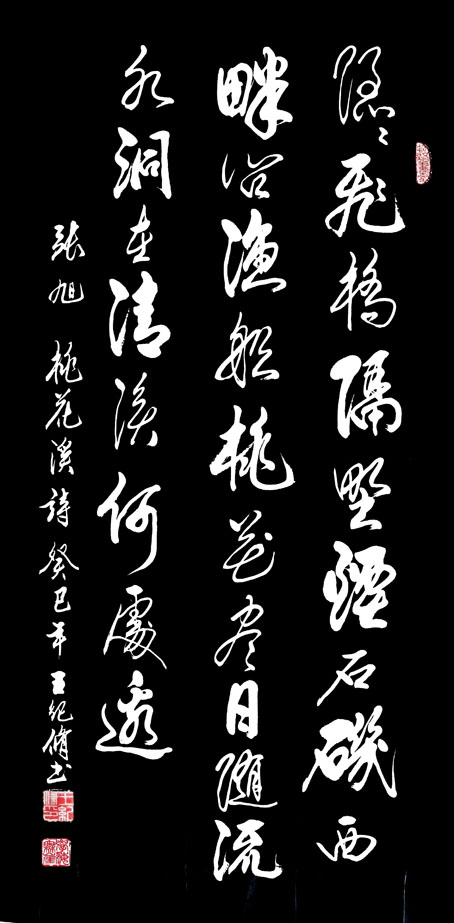 隱隱飛橋隔野煙石磯西
畔問漁船桃花盡日隨流
水洞在清溪何處邊
張旭 桃花溪詩 癸巳年 王紀脩書